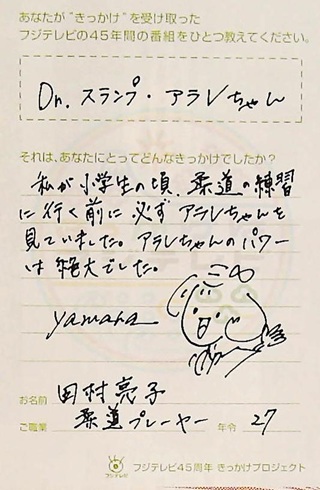 あなたが"きっかけ"を受け取った
フジテレビの45年間の番組をひとつ教えてください。
Dr.スランプ・アラレちゃん
それは、あなたにとってどんなきっかけでしたか?
私が小学生の頃、柔道の練習
に行く前に必ずアラレちゃんを
見ていました。アラレちゃんのパワー
は絶大でした。
お名前 田村亮子
ご職業 柔道プレーヤー 年令 27
フジテレビ
フジテレビ45周年 きっかけプロジェクト